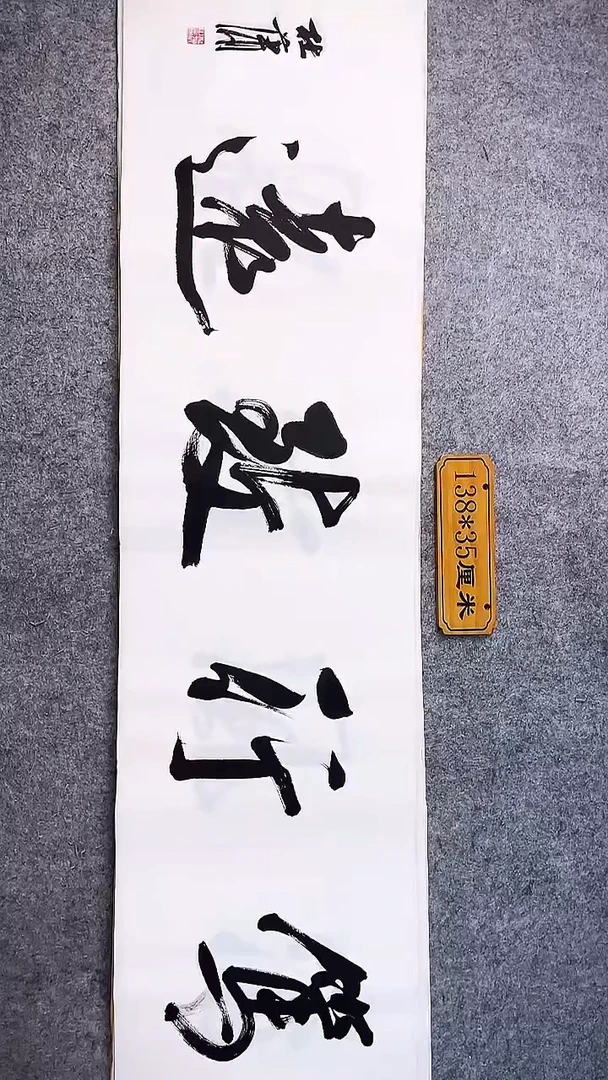 篤行致遠
138*35厘米